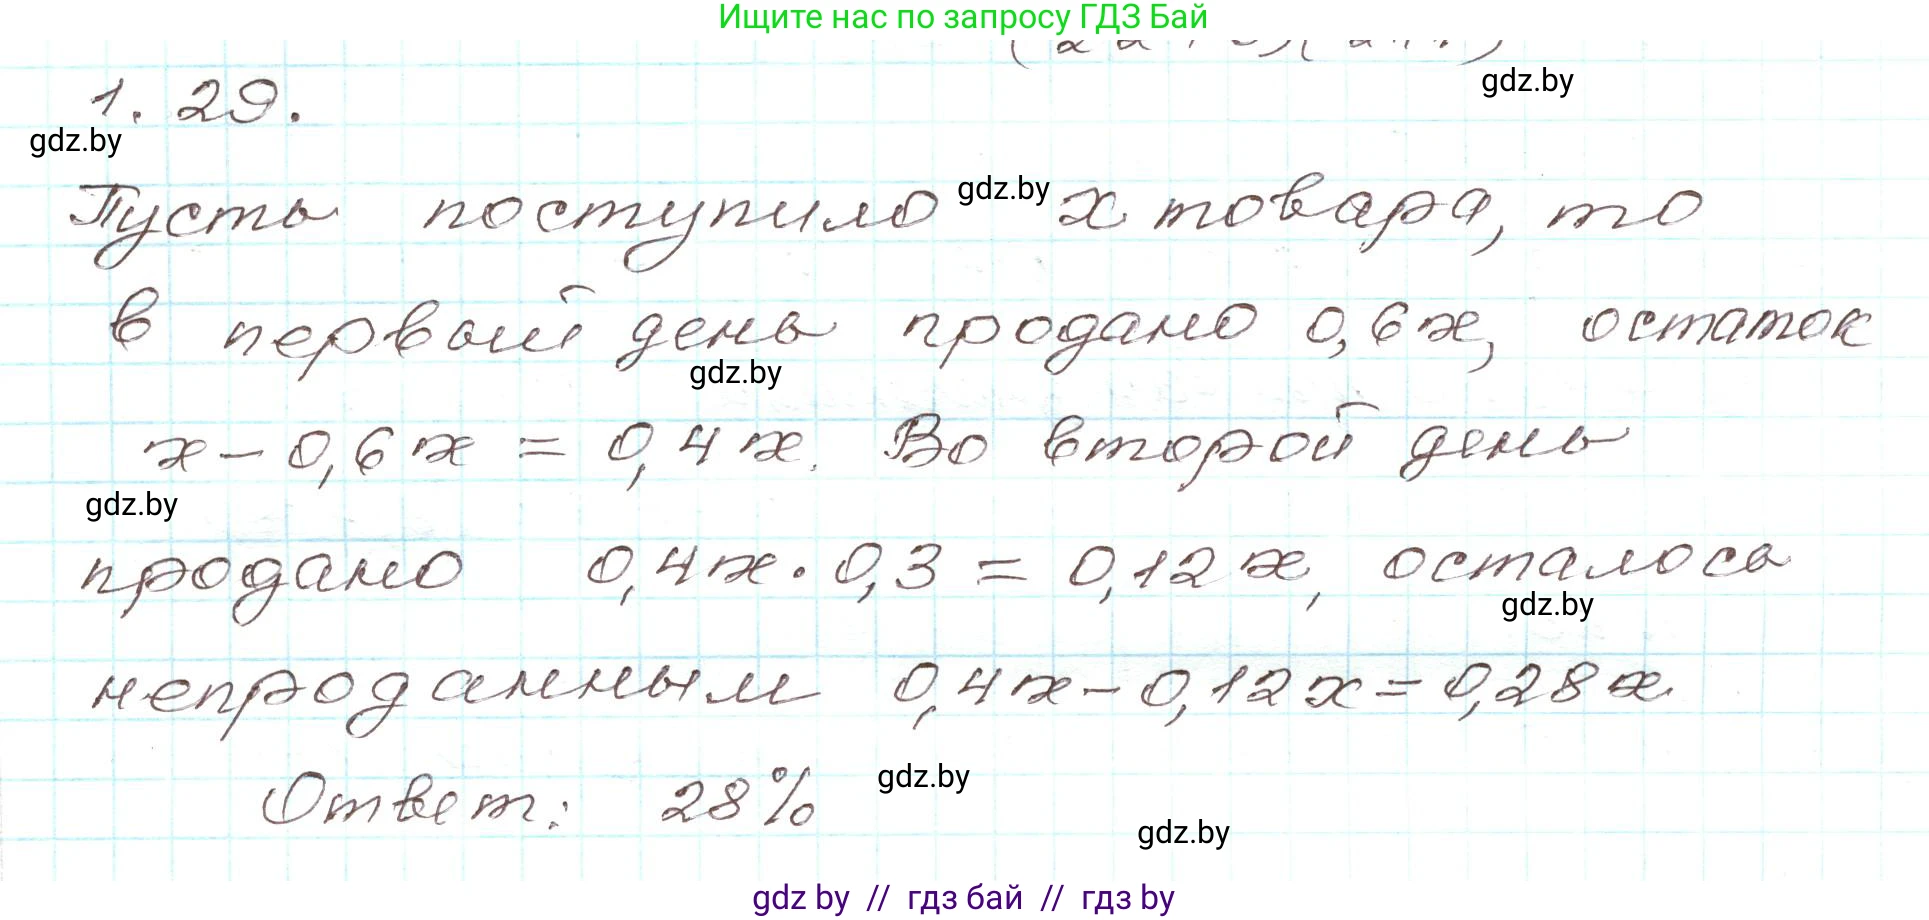 Ищите нас по запросу ГДЗ Бай
gdz.by
1.29.
gdz.by
Пусть поступило gdz.by х товара, то
в первый день продано 0,6х, остаток
gdz.by
х - 0,6х = 0,4х. Во второй день
gdz.by
продано 0,4х · 0,3 = 0,12х, осталось
gdz.by
непроданным 0,4х - 0,12х = 0,28х
Ответ: 28% gdz.by
gdz.by
gdz by // гдз бай // гдз by